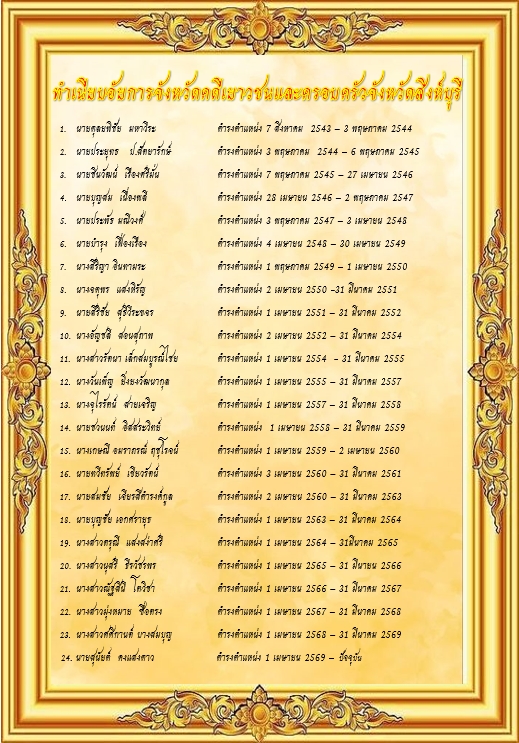 ทำเนียบอัยการจังหวัดคดีเยาวชนและครอบครัวจังหวัดสิงห์บุรี
1. นายดุลยพิชัย มหาวีระ ดำรงตำแหน่ง 7 สิงหาคม 2543 – 3 พฤษภาคม 2544
2. นายประยุทธ ป.สัตยารักษ์ ดำรงตำแหน่ง 3 พฤษภาคม 2544 – 6 พฤษภาคม 2545
3. นายชินวัฒน์ เรืองศรีมั่น ดำรงตำแหน่ง 7 พฤษภาคม 2545 – 27 เมษายน 2546
4. นายบุญสม เนื่องพลี ดำรงตำแหน่ง 28 เมษายน 2546 – 2 พฤษภาคม 2547
5. นายประทัช มณีวงศ์ ดำรงตำแหน่ง 3 พฤษภาคม 2547 – 3 เมษายน 2548
6. นายบำรุง เฟื่องเรือง ดำรงตำแหน่ง 4 เมษายน 2548 – 30 เมษายน 2549
7. นางสิริญา อินทามระ ดำรงตำแหน่ง 1 พฤษภาคม 2549 – 1 เมษายน 2550
8. นางจตุพร แสงหิรัญ ดำรงตำแหน่ง 2 เมษายน 2550 -31 มีนาคม 2551
9. นายสิริชัย สุริวีระขจร ดำรงตำแหน่ง 1 เมษายน 2551 – 31 มีนาคม 2552
10. นางธัญชลี สอนสุภาพ ดำรงตำแหน่ง 2 เมษายน 2552 – 31 มีนาคม 2554
11. นางสาวรัตนา เลิศสมบูรณ์ไชย ดำรงตำแหน่ง 1 เมษายน 2554 - 31 มีนาคม 2555
12. นางวันเพ็ญ ยิ่งยงวัฒนากุล ดำรงตำแหน่ง 1 เมษายน 2555 – 31 มีนาคม 2557
13. นางจุไรรัตน์ สายเจริญ ดำรงตำแหน่ง 1 เมษายน 2557 – 31 มีนาคม 2558
14. นายชวนนท์ อิสสระวิทย์ ดำรงตำแหน่ง 1 เมษายน 2558 – 31 มีนาคม 2559
15. นางเกษณี อมราภรณ์ ดำรงตำแหน่ง 1 เมษายน 2559 – 2 เมษายน 2560
16. นายทวีทรัพย์ เชียวรัตน์ ดำรงตำแหน่ง 3 เมษายน 2560 – 31 มีนาคม 2561
17. นายสมชัย เธียรสิดำรงค์กูล ดำรงตำแหน่ง 2 เมษายน 2560 – 31 มีนาคม 2563
18. นายบุญชัย เอกศราวุธ ดำรงตำแหน่ง 1 เมษายน 2563 – 31 มีนาคม 2564
19. นางสาวดรุณี แสงสง่าศรี ดำรงตำแหน่ง 1 เมษายน 2564 – 31มีนาคม 2565
20. นางสาวนุสรี ธีรวัชรพร ดำรงตำแหน่ง 1 เมษายน 2565 – 31 มีนาคม 2566
21. นางสาวณัฐสินี โตวิชา ดำรงตำแหน่ง 1 เมษายน 2566 – 31 มีนาคม 2567
22. นางสาวมุ่งหมาย ซื่อตรง ดำรงตำแหน่ง 1 เมษายน 2567 – 31 มีนาคม 2568
23. นางสาวศศิกานต์ บางสมบุญ ดำรงตำแหน่ง 1 เมษายน 2568 – 31 มีนาคม 2569
24. นายสุนัยต์ คงแสงดาว ดำรงตำแหน่ง 1 เมษายน 2569 – ปัจจุบัน